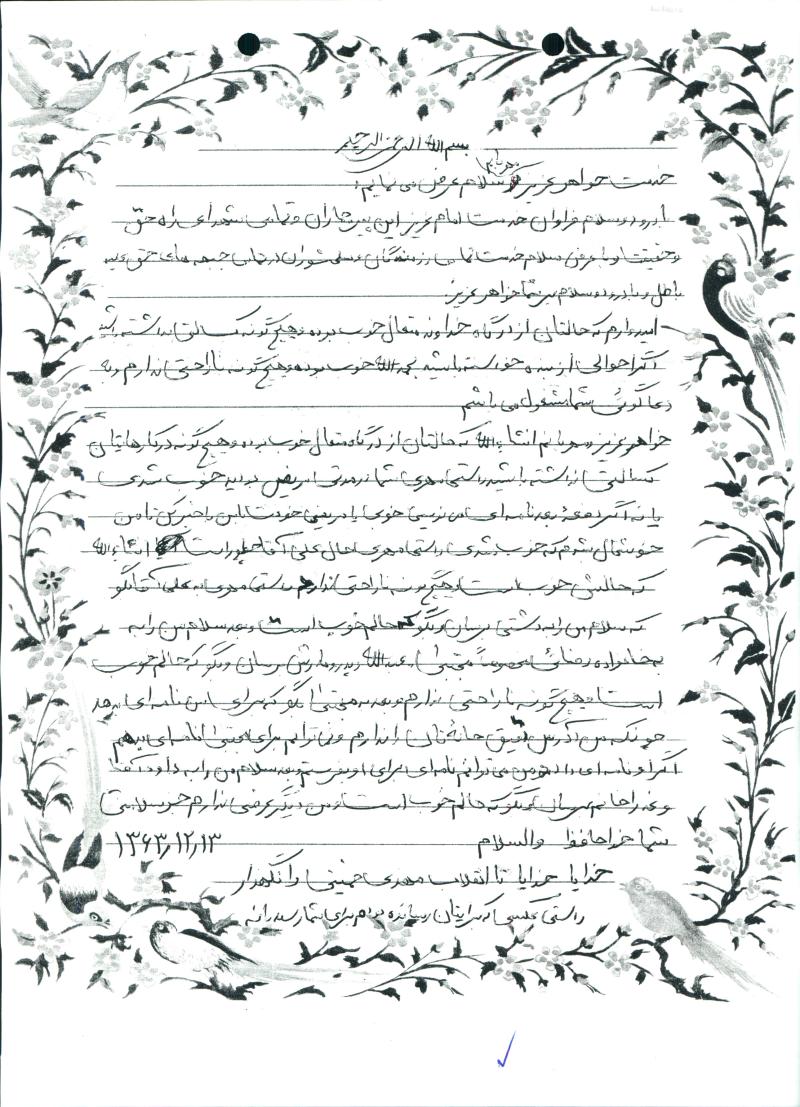 بسم الله الرحمن الرحیم
مهربانم
خدمت خواهر عزیز سلام عرض می نمایم:
با درود و سلام فراوان خدمت امام عزیز این پیر جماران و تمامی شهدای راه حق
و حقیقت و با عرض سلام خدمت تمامی رزمندگان و سلحشوران در تمامی جبهه های حق علیه
باطل و با درود و سلام بر شما خواهر عزیز.
امیدوارم که حالتان از درگاه خداوند متعال خوب بوده و هیچ گونه کسالتی نداشته باشید
اگر احوالی از بنده خواسته باشید بحمدالله خوب بوده و هیچ گونه ناراحتی ندارم و به
دعاگوئی شما مشغول می باشم
خواهر عزیز و مهربانم انشاءالله که حالتان از درگاه متعال خوب بوده و هیچ گونه در کارهایتان
کسالتی نداشته باشید راستی مهری شما در مدتی مریض بودید خوب شدی
یا نه اگر دفعۀ بعد نامه ای به من نویسی خوبی یا مریضی خودت این را ذکر کن تا من
خوشحال بشوم که خوب شدی راستی مهری حال علی آقا چطور است انشاءالله
که حالش خوب است و هیچ گونه ناراحتی ندارم راستی مهری به علی آقا بگو
که سلام من را به دشتی برسان و بگو که حالم خوب است و بعد سلام من را به
به خانواده رضائی مخصوصاً مجتبی عبدالله و پدر و مادرش برسان و بگو که حالم خوب
است و هیچ گونه ناراحتی ندارم و بعد به مجتبی بگو که برای من نامه ای بدهد
چونکه من آدرس دقیق خانه تان را ندارم و نمی توانم برای مجتبی نامه ای بدهم
اگر او نامه ای داد من می توانم نامه ای برای او بفرستم و بعد سلام من را به داود آقا
و خانم برسان و بگو که حالم خوب است و من دیگر عرضی ندارم جز سلامتی
شما خداحافظ والسلام ۱۳۶۳/۱۲/۱۳
خدایا خدایا تا انقلاب مهدی خمینی را نگهدار
راستی عکسی که برایتان فرستاده بودم برای شما رسید یا نه